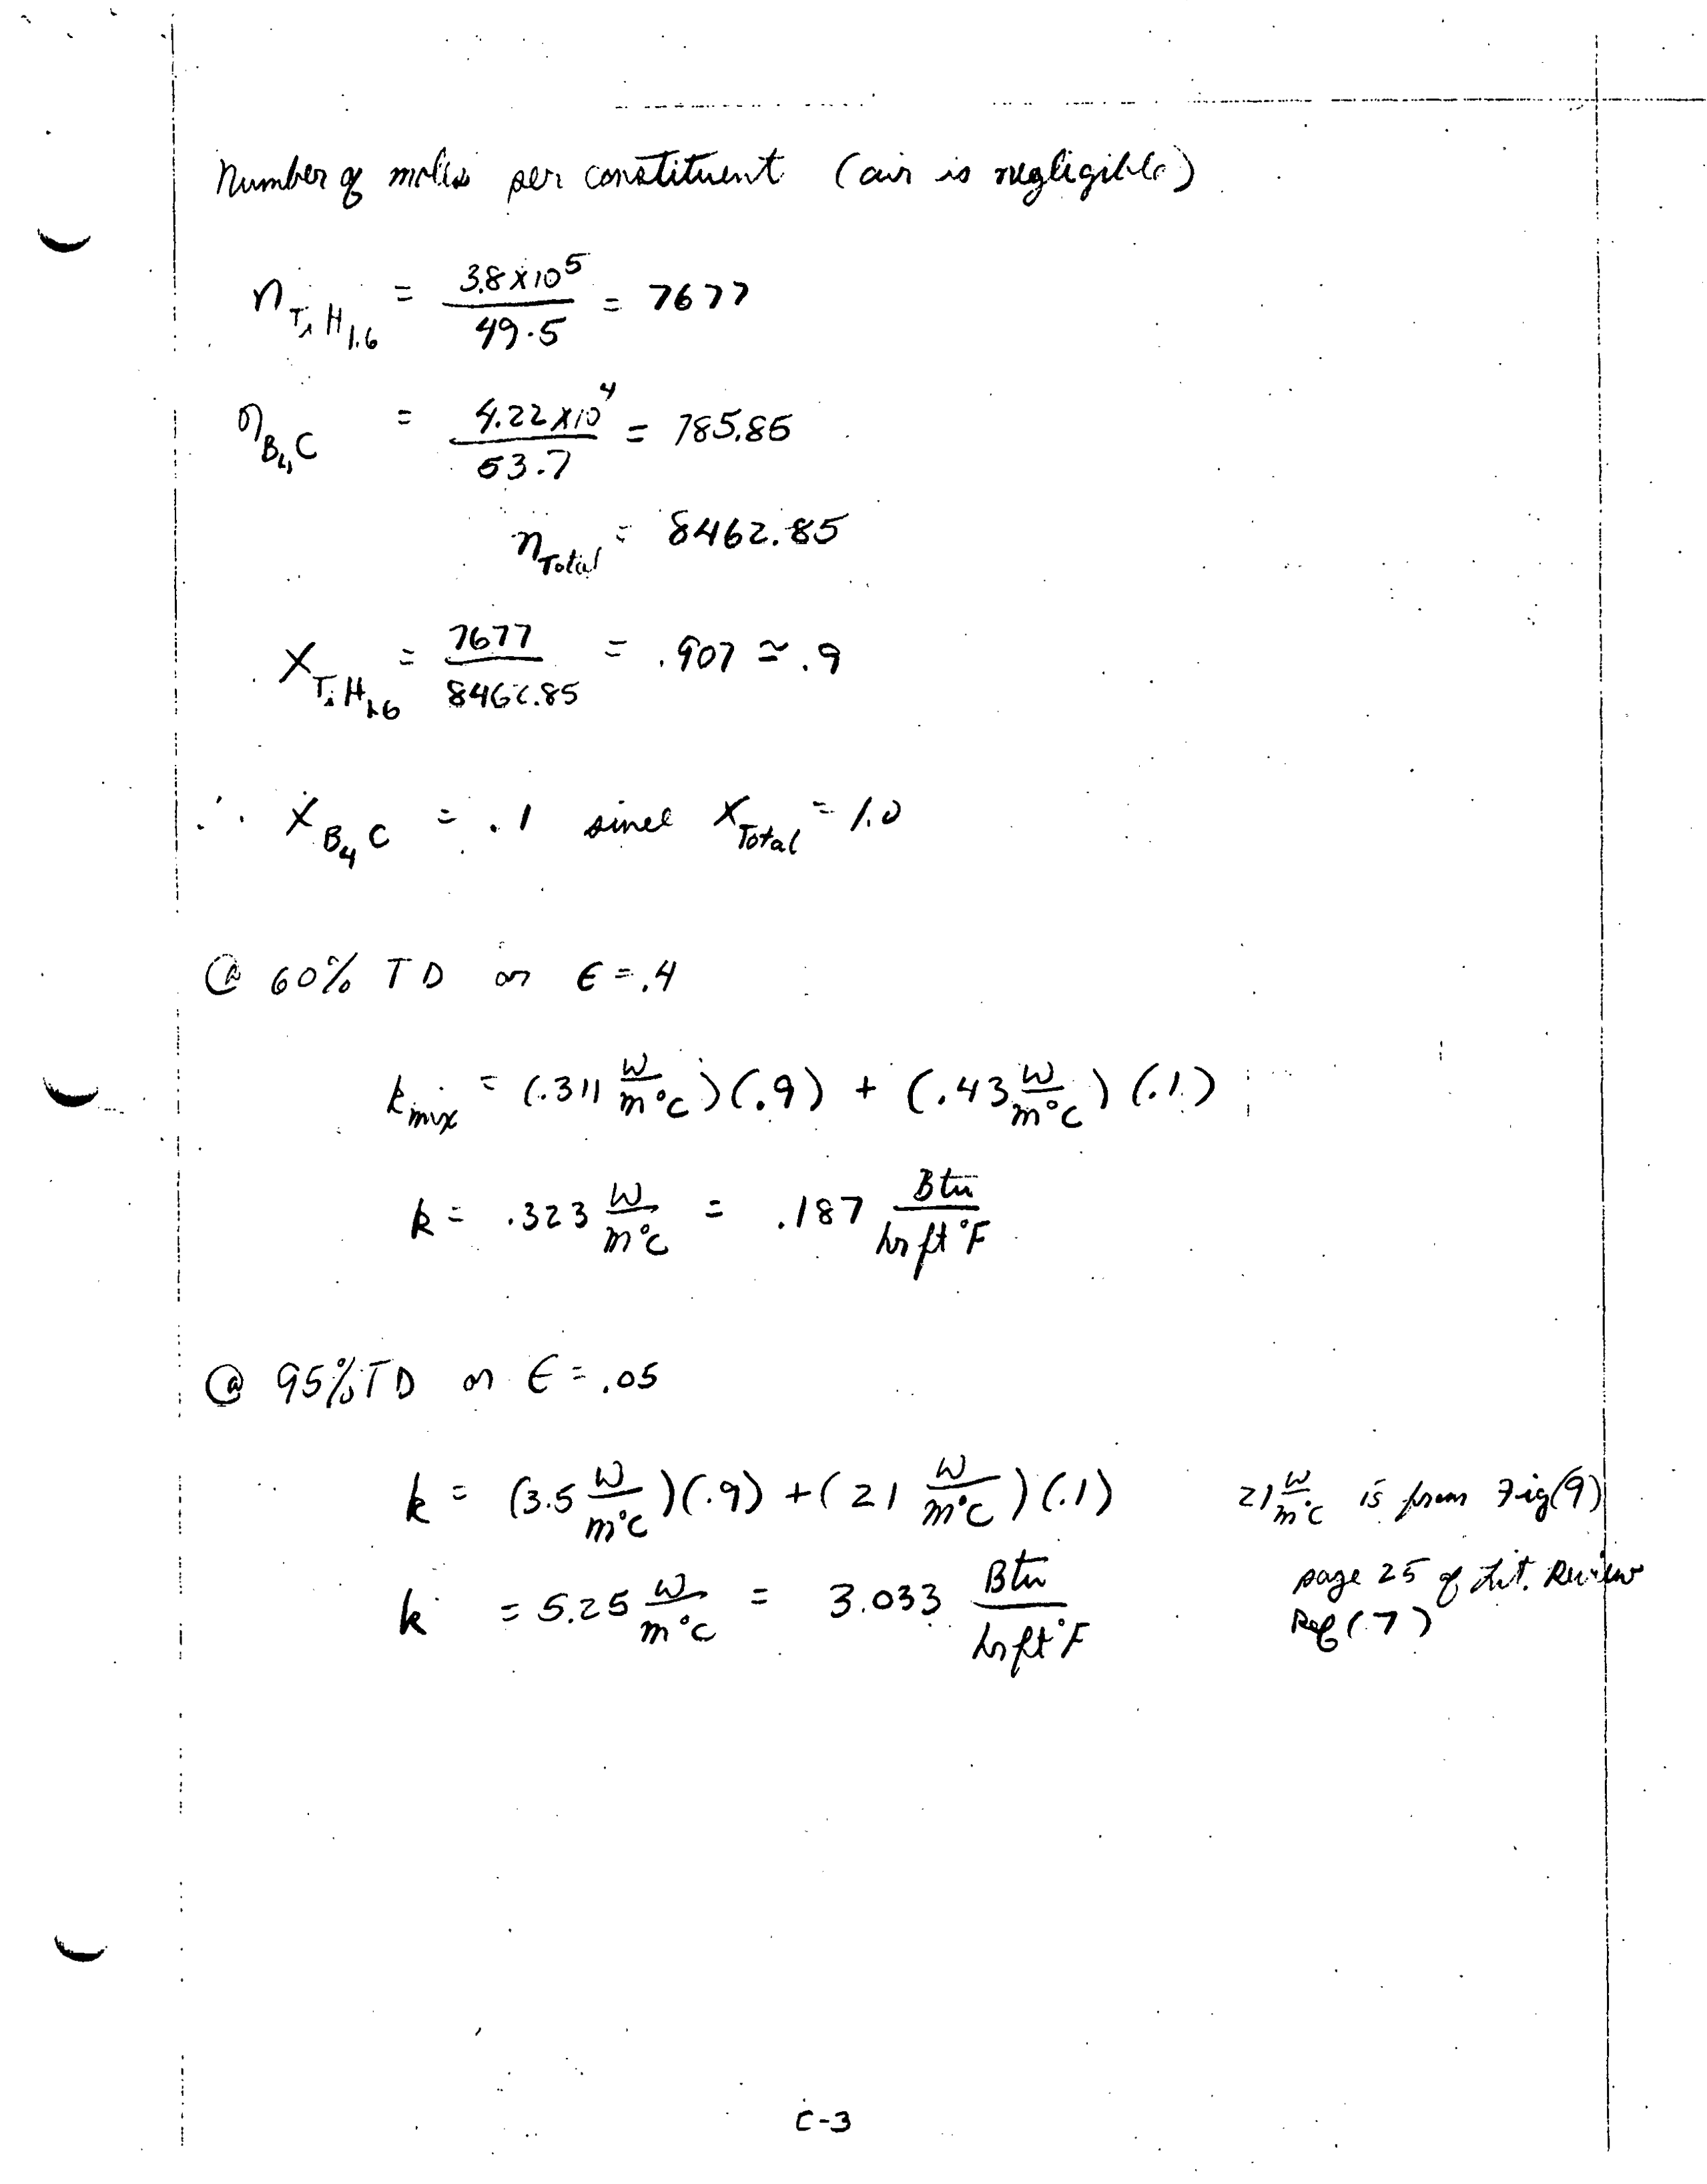 Number of moles per constituent (air is negligible)
n_TiH1.6 = 3.8 x 10^5 / 49.5 = 7677
n_B4C = 4.22 x 10^4 / 53.7 = 785.85
n_Total = 8462.85
X_TiH1.6 = 7677 / 8462.85 = .907 ≃ .9
∴ X_B4C = .1 since X_Total = 1.0
@ 60% TD or ϵ = .4
k_mix = (.311 W/m°C)(.9) + (.43 W/m°C)(.1)
k = .323 W/m°C = .187 Btu/hr ft °F
@ 95% TD or ϵ = .05
k = (3.5 W/m°C)(.9) + (21 W/m°C)(.1)
21 W/m°C is from Fig(9)
page 25 of Lit. Review
Ref (7)
k = 5.25 W/m°C = 3.033 Btu/hr ft °F
C-3